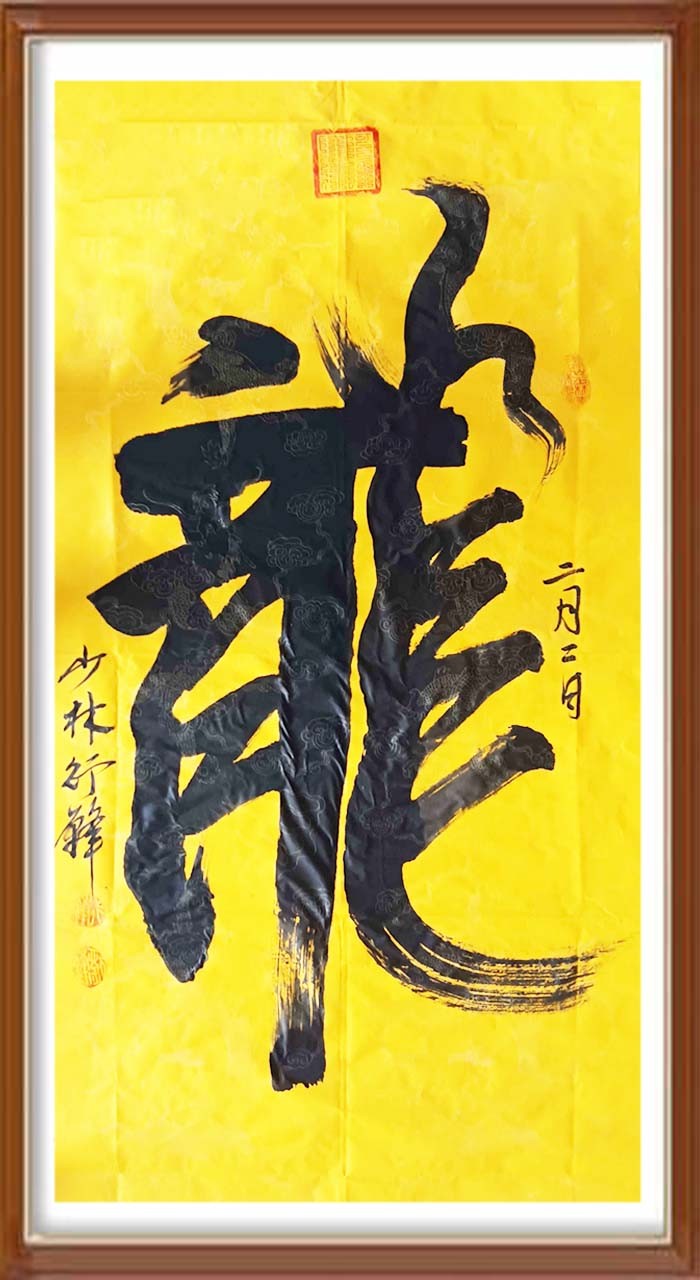 龍
二月二日
少林行鋒